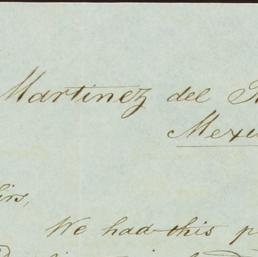 Martinez del
Mexi
irs,
We had this p